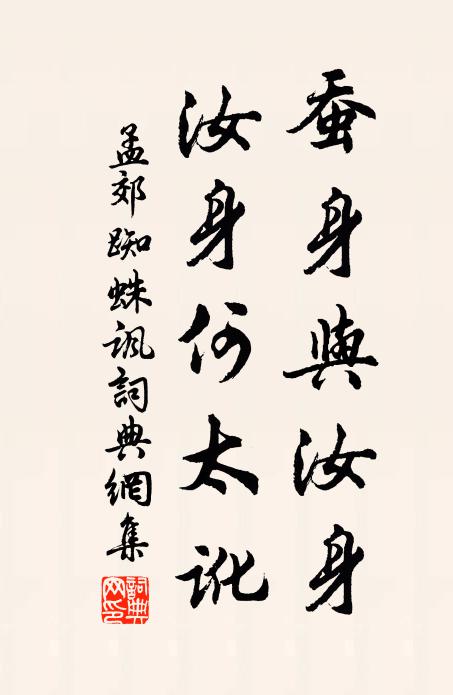 蚕身與汝身
汝身何太訛
孟郊蜘蛛讽詞典網集
詞典網印